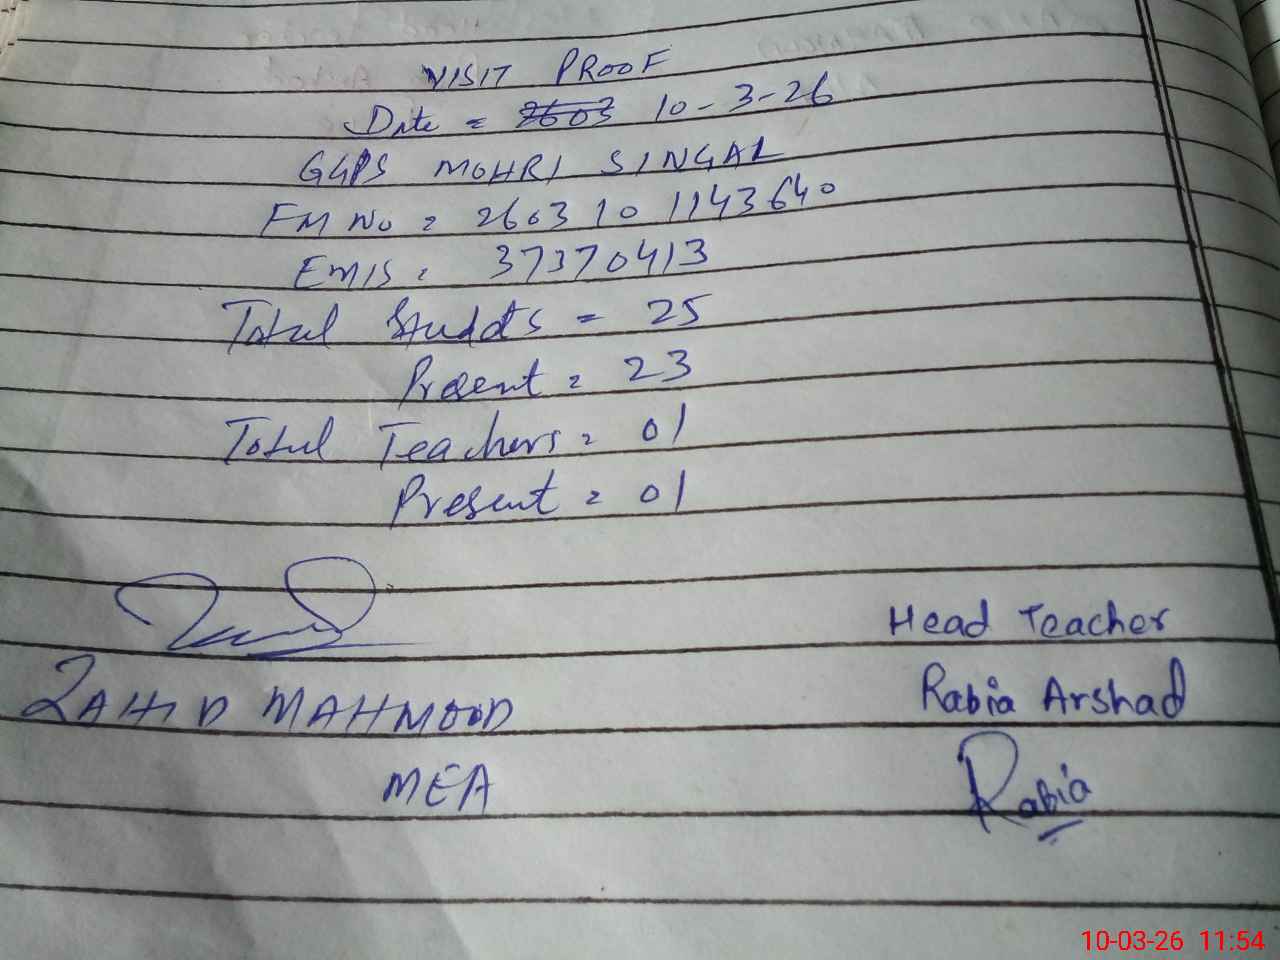 VISIT PROOF
Date = 2603 10-3-26
GGPS MOHRI SINGAL
FM No = 2603 10 1143640
EMIS = 37370413
Total Studdts = 25
Present = 23
Total Teachers = 01
Present = 01
Head Teacher
ZAHID MAHMOOD
Rabia Arshad
MEA
Rabia
10-03-26 11:54